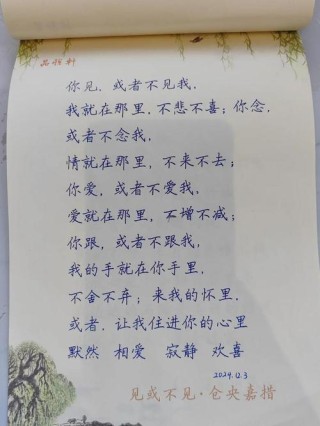 品雅轩
你见，或者不见我，
我就在那里，不悲不喜；你念，
或者不念我，
情就在那里，不来不去；
你爱，或者不爱我，
爱就在那里，不增不减；
你跟，或者不跟我，
我的手就在你手里，
不舍不弃；来我的怀里，
或者，让我住进你的心里
默然 相爱 寂静 欢喜
2024.12.3
见或不见·仓央嘉措